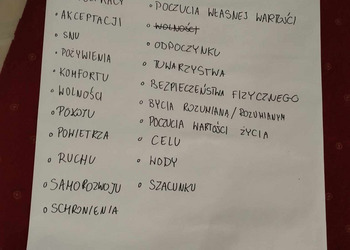 • AKCEPTACJI
• SNU
• POŻYWIENIA
• KOMFORTU
• WOLNOŚCI
• POKOJU
• POWIETRZA
• RUCHU
• SAMOROZWOJU
• SCHRONIENIA
• POCZUCIA WŁASNEJ WARTOŚCI
• WOLNOŚCI
• ODPOCZYNKU
• TOWARZYSTWA
• BEZPIECZEŃSTWA FIZYCZNEGO
• BYCIA ROZUMIANĄ/ROZUMIANYM
• POCZUCIA WARTOŚCI ŻYCIA
• CELU
• WODY
• SZACUNKU